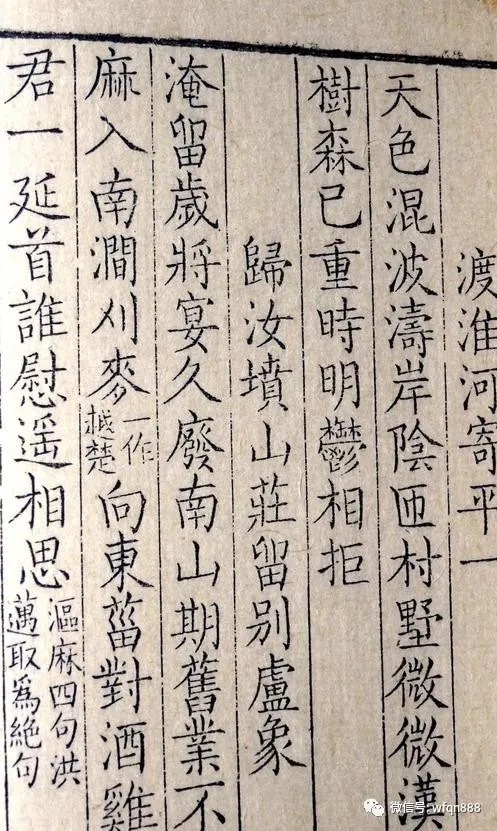 渡淮河寄平一
天色混波濤岸陰匝村墅微微漢
樹森已重時明鬱相拒
歸汝墳山莊留别盧象
淹留歲將宴久廢南山期舊業不
麻入南澗刈麥一作越楚向東菑對酒雞
君一延首誰慰遥相思漚麻四句洪邁取爲絶句
微信号: wfqn888